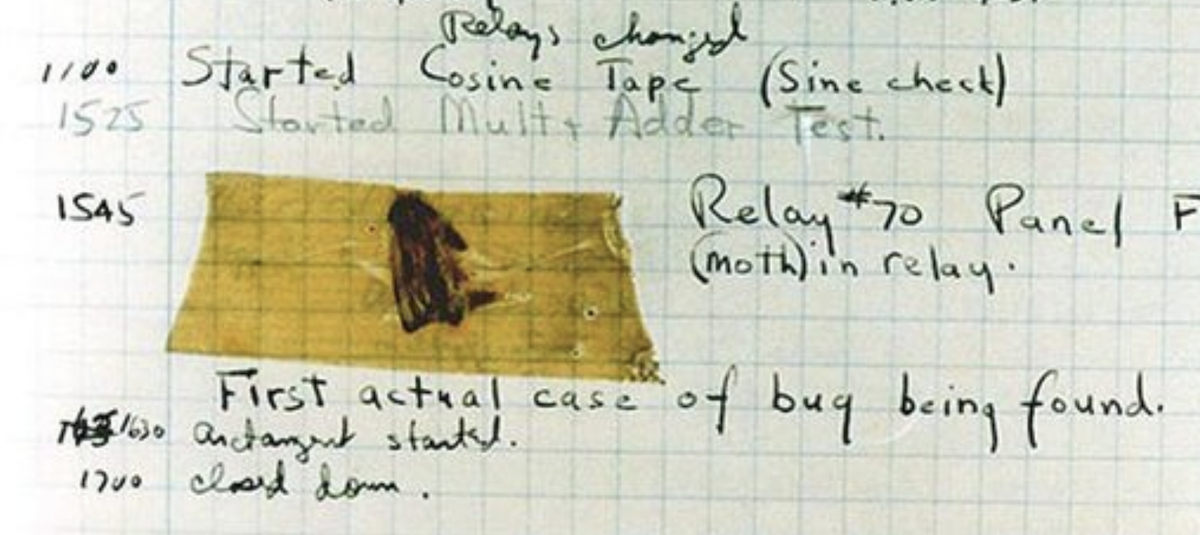 Relays changed
1100 Started Cosine Tape (Sine check)
1525 Started Mult + Adder Test.
1545 Relay #70 Panel F
(moth) in relay.
First actual case of bug being found.
1630 arctangent started.
1700 closed down.